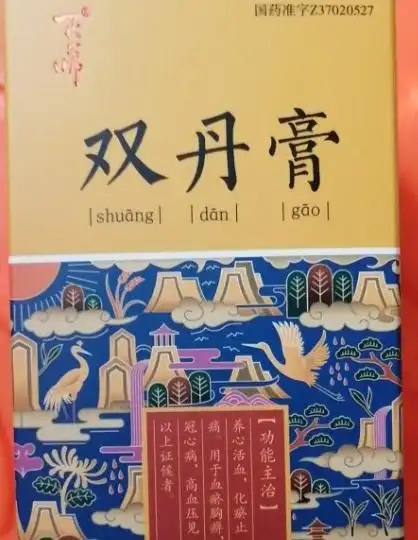 国药准字Z37020527
双丹膏
|shuāng| |dān| |gāo|
【功能主治】
养心活血，化瘀止
痛。用于血瘀胸痹，
冠心病，高血压见
以上证候者。